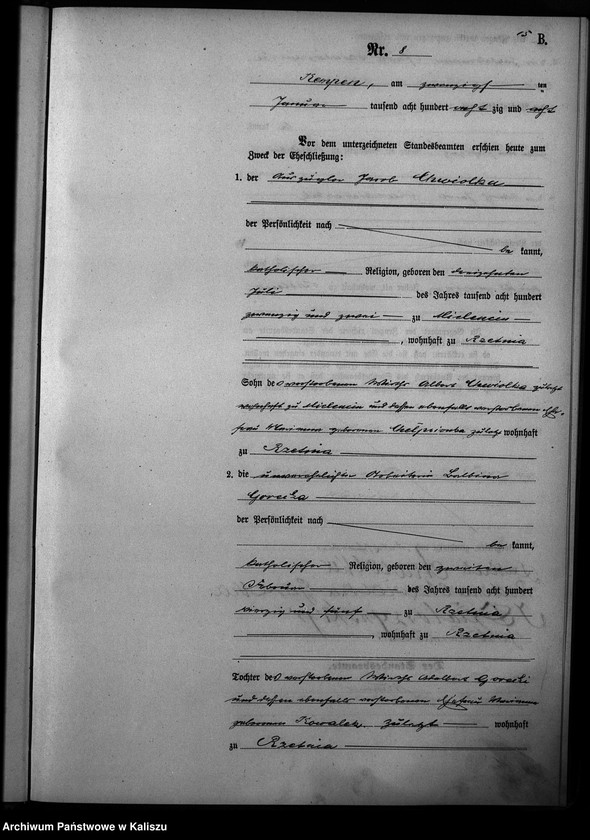 15 B.
Nr. 8
Kempen, am zwanzigsten
Januar tausend acht hundert acht zig und acht
Vor dem unterzeichneten Standesbeamten erschien heute zum
Zweck der Eheschließung:
1. der Auszügler Jacob
der Persönlichkeit nach
be kannt,
katholischer Religion, geboren den dreizehnten
Juli des Jahres tausend acht hundert
zwanzig und zwei zu Mielencin
, wohnhaft zu Rzetnia
Sohn des verstorbenen Wirths Albert zuletzt
wohnhaft zu Mielencin und dessen ebenfalls verstorbenen Ehe-
frau Marianna geborenen zuletzt wohnhaft
zu Rzetnia
2. die unverehelichte Arbeiterin Balbina
Gorecka
der Persönlichkeit nach
be kannt,
katholischer Religion, geboren den zweiten
Februar des Jahres tausend acht hundert
vierzig und fünf zu Rzetnia
, wohnhaft zu Rzetnia
Tochter des verstorbenen Wirths Adalbert Gorecki
und dessen ebenfalls verstorbenen Ehefrau Marianna
geborenen Kowalek zuletzt wohnhaft
zu Rzetnia
Archiwum Państwowe w Kaliszu